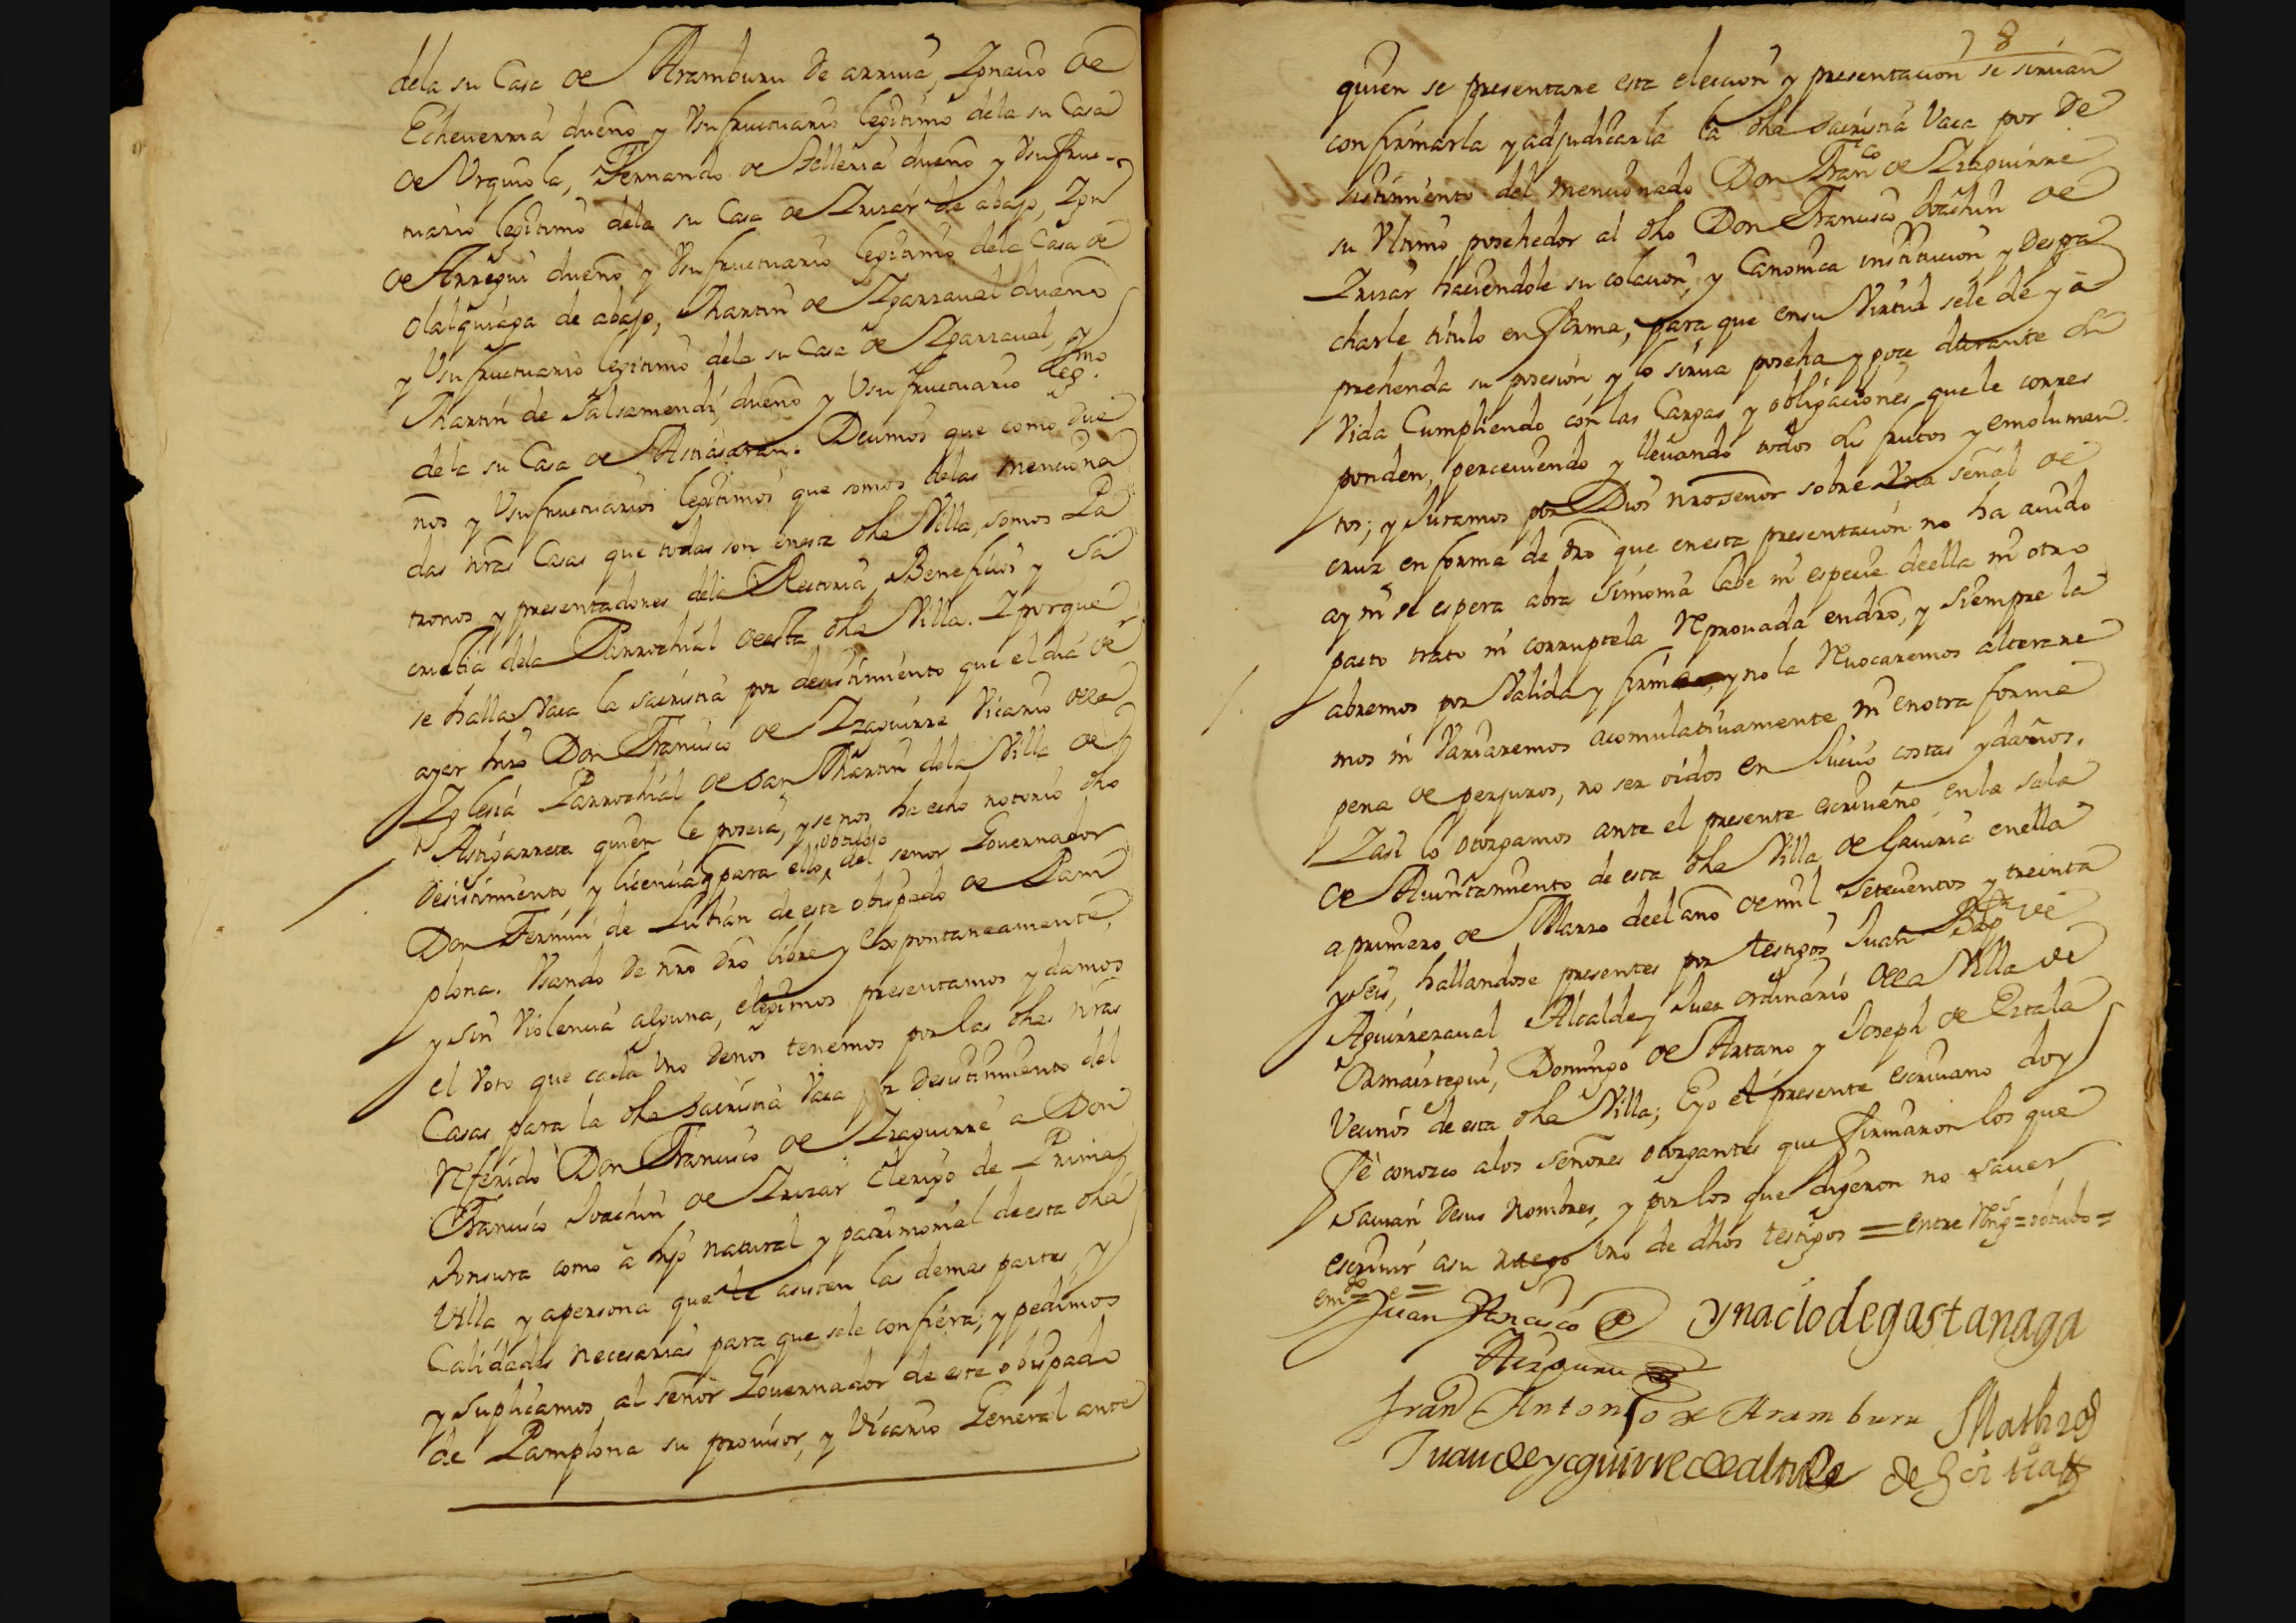 dela su Casa de Aramburu de arriua, Ygnacio de
Echeuerria dueño y Vsufructuario legitimo dela su Casa
de Vrquiola, Fernando de Telleria dueño y Vsufruc-
tuario legitimo dela su Casa de Yrizar de abajo, Ygn
de Arregui dueño y Vsufructuario legitimo dela Casa de
Olalquiaga de abajo, Martin de Ygarzaual dueño
y Vsufructuario legitimo dela su Casa de Ygarzaual, y
Martin de Salsamendi, dueño y Vsufructuario leg.mo
dela su Casa de : Decimos que como due
ños y Vsufructuarios legitimos que somos delas menciona
das nras Casas que todas son enesta dha Villa, somos Pa
tronos y presentadores dela Rectoria Beneficios y Sa
cristia dela Parrochial deesta dha Villa. Y porque
se halla Vaca la sacristia por desistimiento que el dia de
ayer hizo Don Francisco de Yzaguirre Vicario dela
Yglesia Parrochial de san Martin dela Villa de
Astigarreta quien le poseia, y senos ha echo notorio dho
obtubo
desistimiento y licencia para ello, del señor Gouernador
Don Fermin de Lubian de este obispado de Pam
plona. Vsando de nro dro libre y Espontaneamente,
y sin Violencia alguna, elegimos presentamos y damos
el Voto que cada Vno denos tenemos por las dhas nras
Casas para la dha sacristia Vaca por desistimiento del
Referido Don Francisco de Yzaguirre a Don
Francisco Joachin de Yrizar Clerigo de Prima
tonsura como â hijo natural y patrimonial deesta dha
Villa y apersona que le asisten las demas partes y
Calidades necesarias para que sele confiera; y pedimos
y suplicamos al señor Gouernador de este obispado
de Pamplona su prouisor, y Vicario General ante
8
quien se presentare esta eleccion y presentacion se siruan
confirmarla y adjudicarla la dha sacristia Vaca por De
sistimiento del mencionado Don Fran.co de Yzaguirre
su Vltimo posehedor al dho Don Francisco Joachin de
Yrizar haciendole su colacion, y Canonica institucion y Despa
charle titulo en forma, para que ensu Virtud sele de y a
prehenda su posesion y lo sirua poseha y goze durante su
Vida Cumpliendo con las Cargas y obligaciones que le corres
ponden, perceuiendo y lleuando todos sus frutos y emolumen
tos; y Juramos por Dios nro señor sobre Vna señal de
cruz en forma de dro que enesta presentacion no ha auido
ay ni se espera abra Simonia labe ni especie deella ni otro
pacto trato ni corruptela Reprouada endro, y siempre la
abremos por Valida y firme, y no la Reuocaremos alterare
mos ni Variaremos acomulatiuamente ni enotra forma
pena de perjuros, no ser oidos en Juicio costas y daños.
Yasi lo otorgamos ante el presente escriuano en la sala
de Aiuntamiento de esta dha Villa de Gauiria enella
a primero de Marzo deel año de mil setecientos y treinta
y seis, hallandose presentes por testigos Juan Bap.ta de
Aguirrezaual Alcalde y Juez ordinario dela Villa de
Ormaiztegui, Domingo de Artano y Joseph de Eztala
Vecinos de esta dha Villa; Eyo el presente escriuano doy
fè conozco alos señores otorgantes que firmaron los que
sauian desus nombres, y por los que dijeron no sauer
escriuir asu ruego Vno de dhos testigos = entre Reng = obtubo =
em.do = e =
Juan Francisco de
ynacio de gastanaga
Aizpuru
Fran Antonio de Aramburu
Juan de yçaguirre de